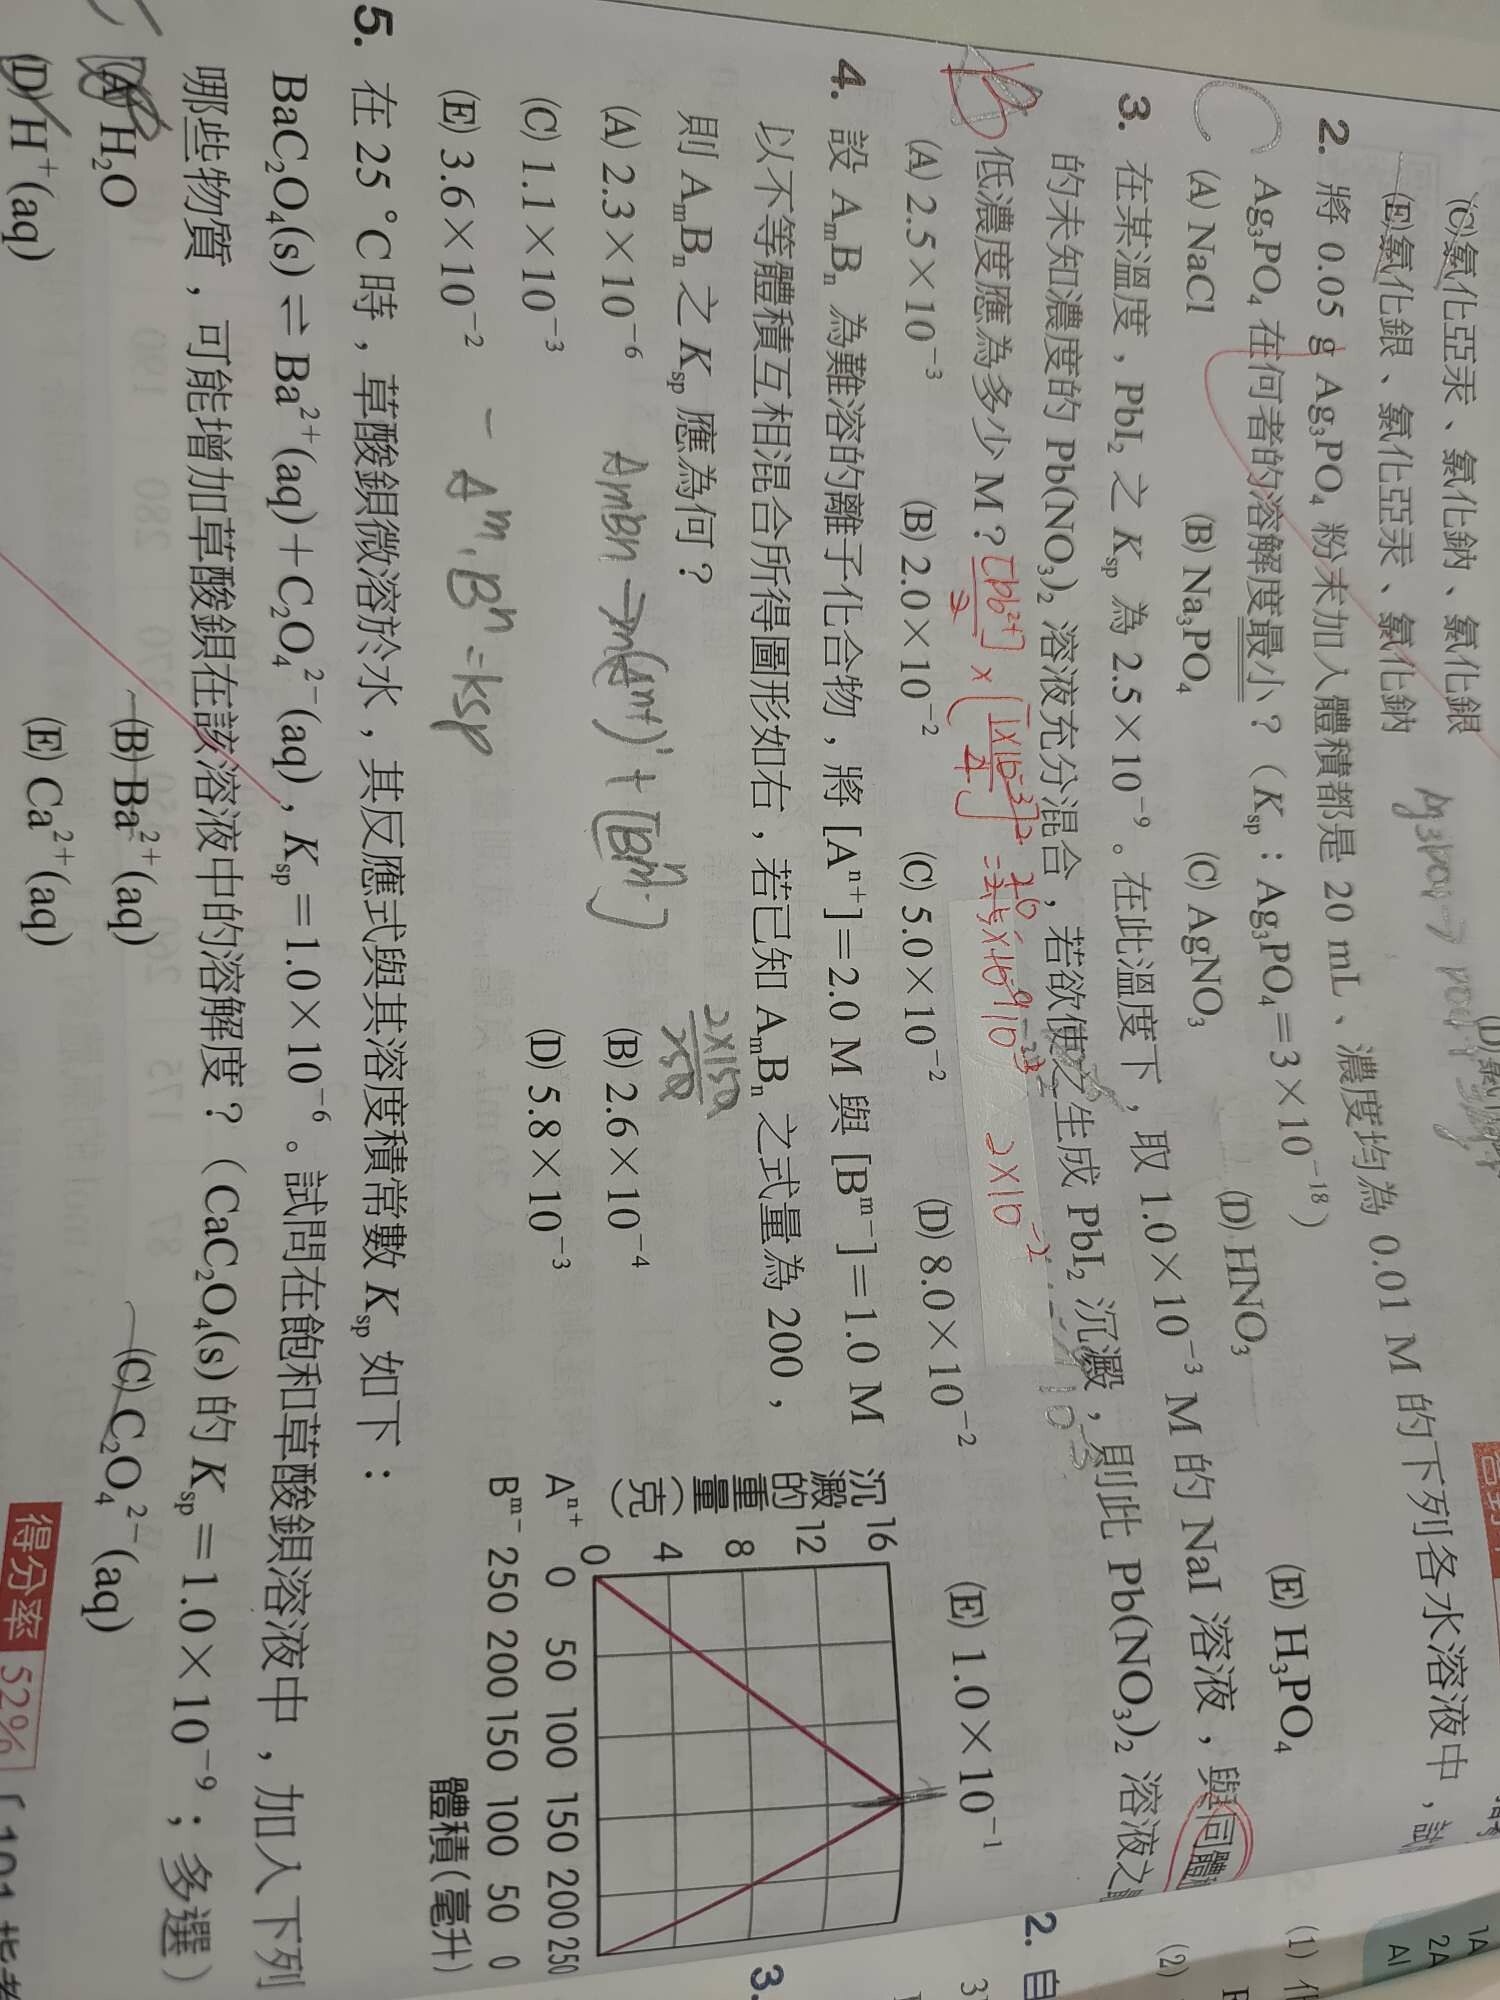 (C)氯化亞汞、氯化鈉、氯化銀
(E)氯化銀、氯化亞汞、氯化鈉
2. 將 0.05 g Ag₃PO₄ 粉末加入體積都是 20 mL、濃度均為 0.01 M 的下列各水溶液中，試
Ag₃PO₄ 在何者的溶解度最小？（Kₛₚ：Ag₃PO₄＝3×10⁻¹⁸）
(A) NaCl (B) Na₃PO₄ (C) AgNO₃ (D) HNO₃ (E) H₃PO₄
3. 在某溫度，PbI₂ 之 Kₛₚ 為 2.5×10⁻⁹。在此溫度下，取 1.0×10⁻³ M 的 NaI 溶液，與同體
的未知濃度的 Pb(NO₃)₂ 溶液充分混合，若欲使之生成 PbI₂ 沉澱，則此 Pb(NO₃)₂ 溶液之
低濃度應為多少 M？
(A) 2.5×10⁻³ (B) 2.0×10⁻² (C) 5.0×10⁻² (D) 8.0×10⁻² (E) 1.0×10⁻¹
2×10⁻²
4. 設 AₘBₙ 為難溶的離子化合物，將 [Aⁿ⁺]＝2.0 M 與 [Bᵐ⁻]＝1.0 M
以不等體積互相混合所得圖形如右，若已知 AₘBₙ 之式量為 200，
則 AₘBₙ 之 Kₛₚ 應為何？
(A) 2.3×10⁻⁶ (B) 2.6×10⁻⁴
(C) 1.1×10⁻³ (D) 5.8×10⁻³
(E) 3.6×10⁻²
2×150
250
Aᵐ, Bⁿ = ksp
沉澱的重量(克)
16
12
8
4
0
Aⁿ⁺ 0 50 100 150 200 250
Bᵐ⁻ 250 200 150 100 50 0
體積(毫升)
5. 在 25 °C 時，草酸鋇微溶於水，其反應式與其溶度積常數 Kₛₚ 如下：
BaC₂O₄(s) ⇌ Ba²⁺(aq)＋C₂O₄²⁻(aq)，Kₛₚ＝1.0×10⁻⁶。試問在飽和草酸鋇溶液中，加入下列
哪些物質，可能增加草酸鋇在該溶液中的溶解度？（CaC₂O₄(s) 的 Kₛₚ＝1.0×10⁻⁹；多選）
(A) H₂O (B) Ba²⁺(aq) (C) C₂O₄²⁻(aq)
(D) H⁺(aq) (E) Ca²⁺(aq)
得分率 52%
2. 自
3.
(1)
(2)
1A
2A